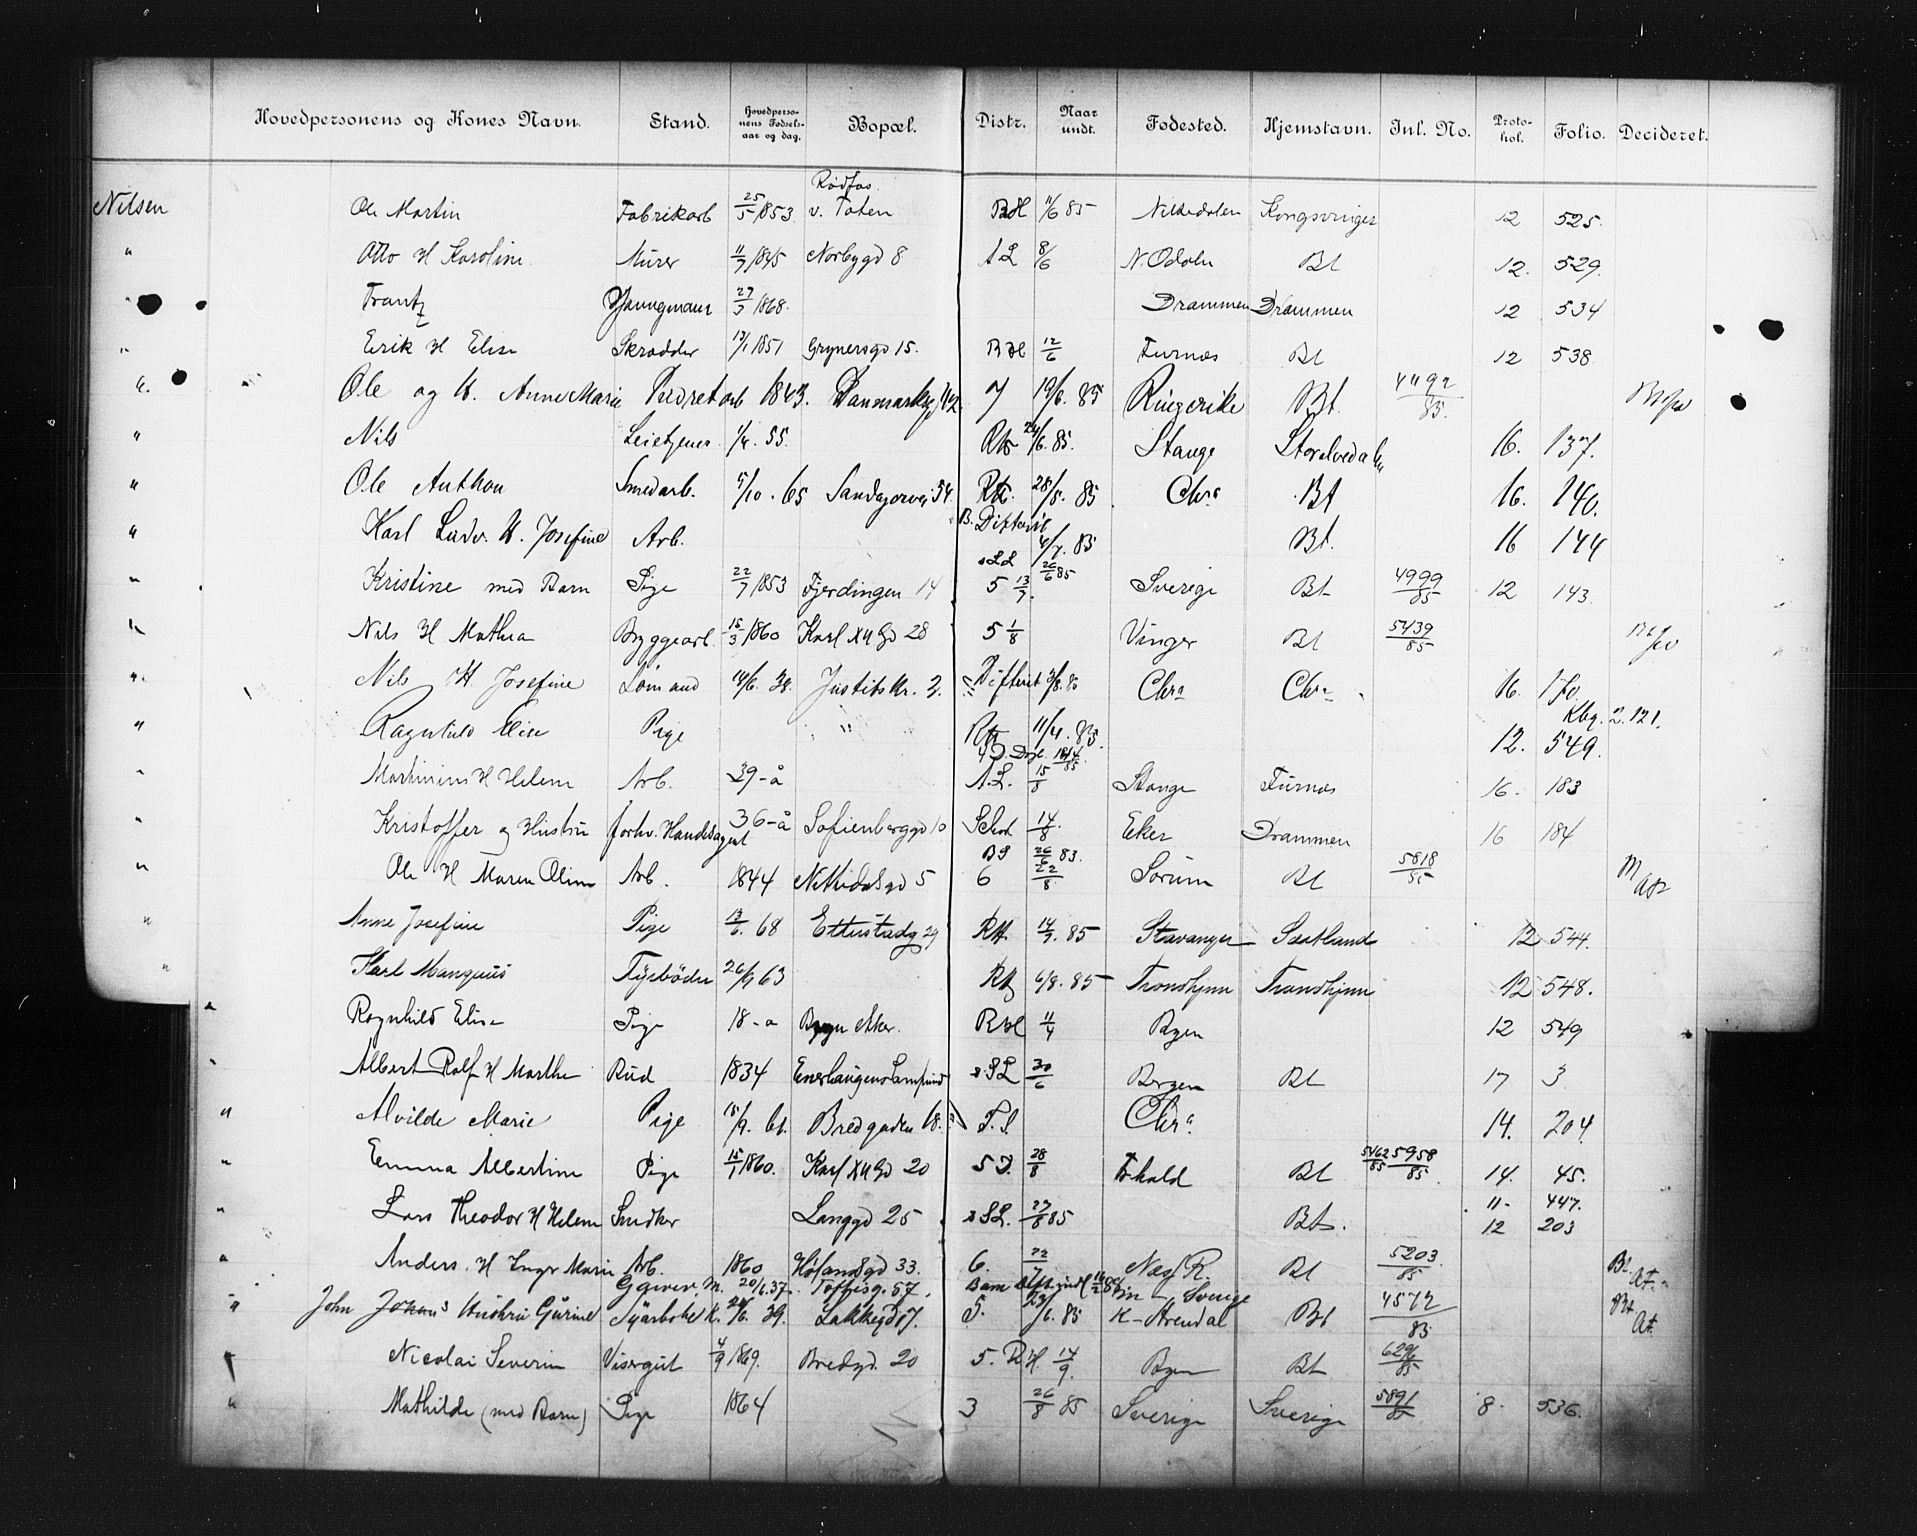 Hovedpersonens og Kones Navn. Stand. Hovedpersonens Fødselsaar og dag. Bopæl. Distr. Naar undt. Fødested. Hjemstavn. Inl. No. Protokol. Folio. Decideret.
Nilsen Ole Martin Fabrikarb 25/5 1853 Rødfos v. Toten BH 11/6 85 Nittedalen Kongsvinger 12 525.
" Otto H Karoline Murer 11/7 1845 Norbygd 8 A L 8/6 N. Odalen Bt 12. 529.
" Frantz Youngmann 27/3 1868. Drammen Drammen 12 534
" Erik H Elise Skrædder 1851 Grynersgd 15. B H 12/6 Furnæs Bt 12 538
" Ole og H. Anne Marie 1843. Danmarksg 42. 7 19/6. 85 Ringerike Bt. 4492/85.
" Nils Leietjener 1/4. 55. 24/6. 85. Stange Storelvedalen 16. 137.
" Ole Anthon Smedarb. 5/10. 65 Sandagervei 54. 28/5. 85 Chra Bt 16. 140.
" Karl Ludv. H. Josefine Arb. B. Difterit 4/7. 85 Bt. 16 144
" Kristine med Barn Pige 22/7 1853 Fjerdingen 14 s L L 26/6 85 5 13/7. Sverige Bt 4999/85 12 143
" Nils H Mathea Byggearb. 15/3 1860 Karl XII Gd 28 5 1/8 Vinger Bt 5439/85
" Nils H. Josefine Lømand 14/6. 38. Justitskr. 2. Difterit Chra Chra 16. 170.
" Ragnhild Elise Pige " 11/4. 85. 12. 549. Kbg. 2. 121.
" Martinius H Helene Arb. 39-å A. L. 15/8 Stange Furnæs 16. 183
" Kristoffer og Hustru forhv. Handelsagent 36-å Sofienberggd 10 14/8 Eker Drammen 16 184
" Ole H Maren Oline Arb. 1844 Nittedalsgd 5 6 22/8 Sørum Bt 5818/85
" Anne Josefine Pige 13/6. 68 29 14/7. 85 Stavanger 12 544.
" Karl Mangnus Fyrbøder 26/9 63 6/8. 85 Trondhjem Trondhjem 12 548.
" Ragnhild Elise Pige 18-a Bygn Aker. 11/4 Byen 12 549
" Albert Rolf H Marthe Rud 1834 Enerhaugens s S L 30/6 Bergen Bt 17 3.
" Alvilde Marie Pige 15/9. 61. Bredgaden 18. F. S. Chra. 14. 204
" Emma Albertine Pige 15/1 1860. Karl XII Gd 20 5 D. 28/8 Fr.hald Bt 5462/85 5958/85 14. 45.
" Lars Theodor H Helene Snedker Langgd 25 s S L. 27/8 85 Bt. 11- 447. 12 203
" Anders. H Inger Marie Arb. 1860 gd 33. 6. 22/7 Næs R. Bt 5203/85 Bt. At.
" John Johans Hustru Gurine M. 20/6. 37. K. 39. Toftesg. 57. Lakkegd 17. 5. 23/6. 85 Sverige K- Arendal Bt 4572/85 Bt. At.
" Nicolai Severin Visergut 4/9 1869. Bredgd. 20 5. 14/9. Byen Bt 6296/85
" Mathilde (med Barn) Pige 1864 3 26/8 85 Sverige Sverige 5891/85 8. 536.